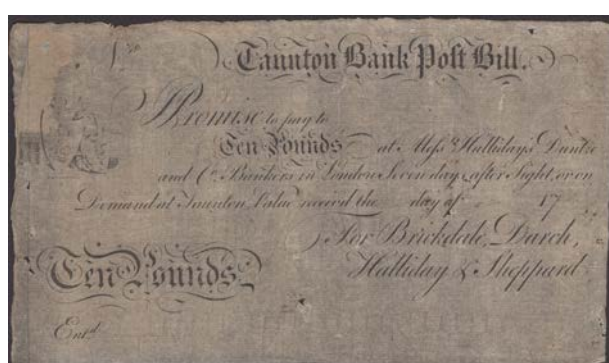 No
Taunton Bank Post Bill.
I Promise to pay to
Ten Pounds at Messrs Hallidays Duntze
and Co. Bankers in London Seven days after Sight, or on
Demand at Taunton, Value received the day of 17
For Brickdale, Darch,
Halliday & Sheppard
Ten Pounds
Entd.